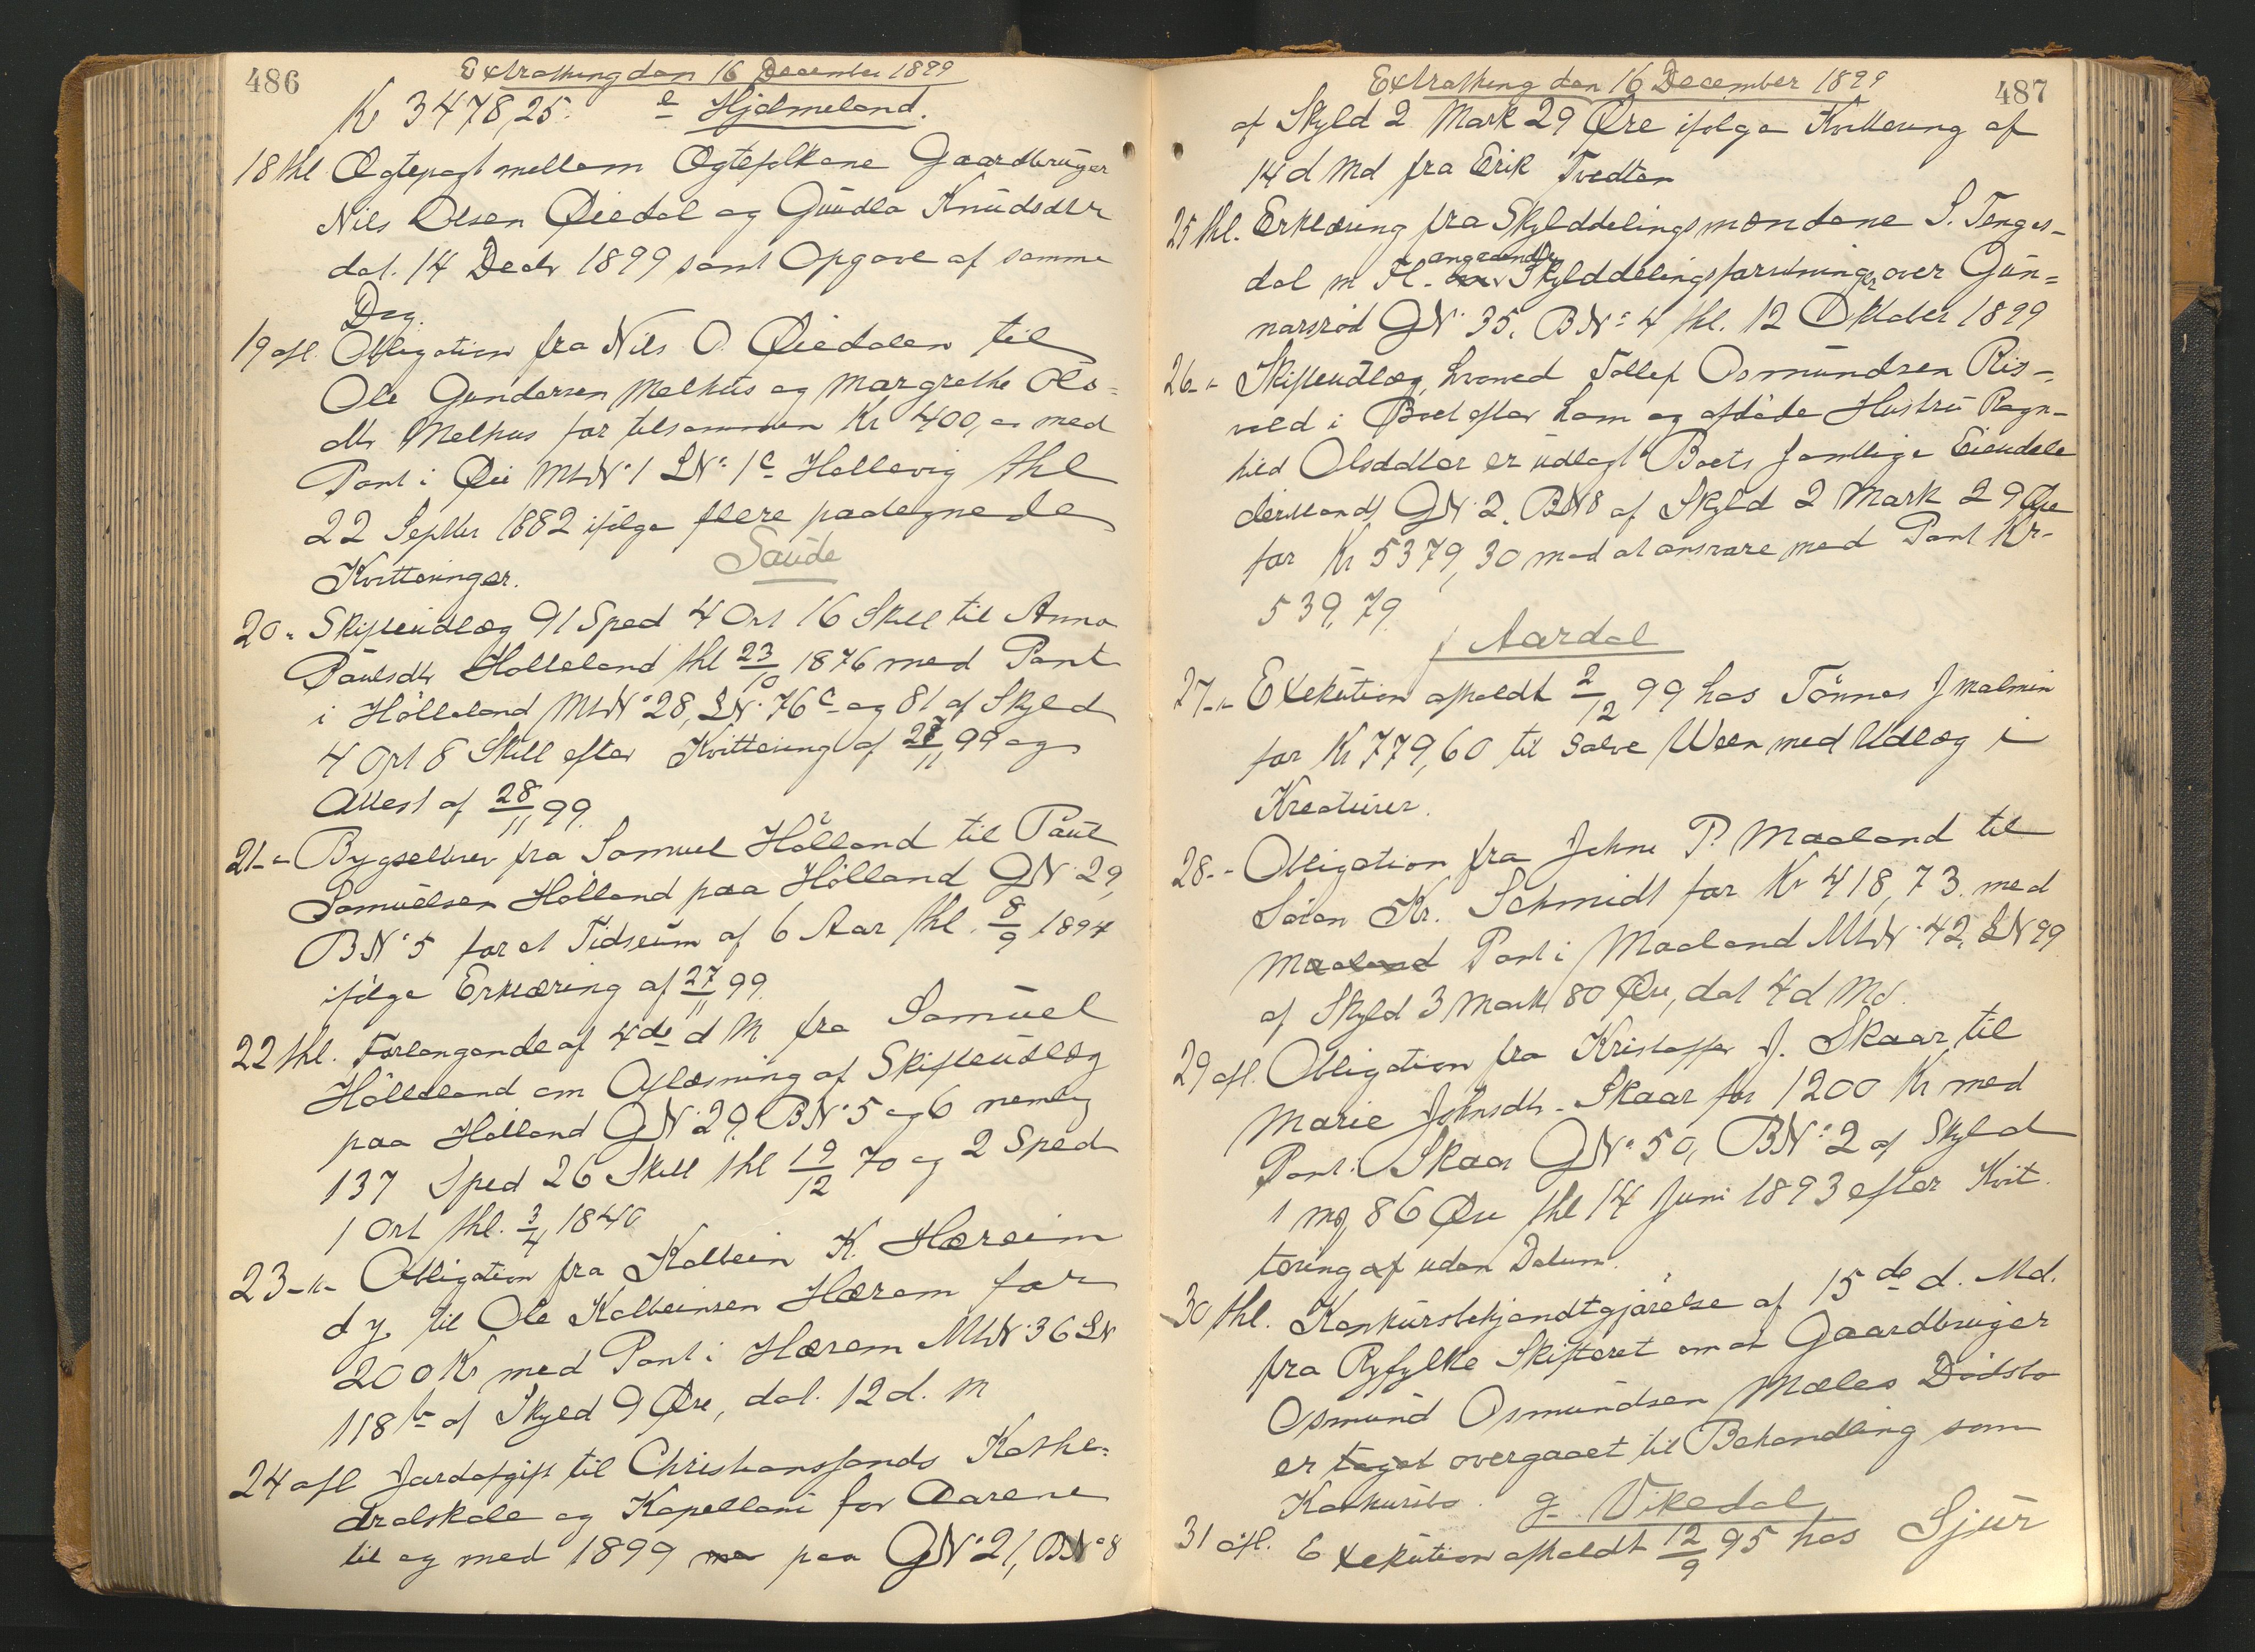 486
Extrathing den 16 December 1899
Kr 3478,25. e Hjelmeland.
18 thl. Ægtepagt mellem Ægtefolkene Gaardbruger
Nils Olsen Øiedal og Gundla Knudsdtr
dat. 14 Decbr 1899 samt Opgave af samme
Dag.
19 afl. Obligation fra Nils O. Øiedalen til
Ole Gundersen Melhus og Margrethe Ols-
dtr Melhus for tilsammen Kr 400, med
Pant i Øie MtrN° 1 LN° 1c Hallevig thl
22 Septbr 1882 ifølge flere padegnede
Kvitteringer. Saude
20 " Skifteudlæg 91 Sped 4 Ort 16 Skill til Anna
Paulsdtr Hølleland thl 23/10 1876 med Pant
i Hølleland MtrN° 28, LN° 76c og 81 af Skyld
4 Ort 8 Skill efter Kvittering af 27/11 99 og
Attest af 28/11 99.
21 - " Bygselbrev fra Samuel Hølland til Paul
Samuelsen Hølland paa Hølland GN° 29,
BN° 5 for et Tidsrum af 6 Aar thl. 8/9 1894
ifølge Erklæring af 27/11 99.
22 thl. Forlangende af 4de d M fra Samuel
Hølleland om Aflæsning af Skifteudlæg
paa Hølland GN° 29, BN° 5 og 6 nemlig
137 Sped 26 Skill thl 19/12 70 og 2 Sped
1 Ort thl. 3/4 1840
23 - " - Obligation fra Kolbein K. Hæreim
d y. til Ole Kolbeinsen Hærem for
200 Kr med Pant i Hærem MtrN° 36 LN
118b af Skyld 9 Øre, dat. 12 d. M
24 afl Jordafgift til Christiansands Kathe-
dralskole og Kapellani for Aarene
til og med 1899 paa GN° 21, BN° 8
Extrathing den 16 December 1899
487
af Skyld 2 Mark 29 Øre ifølge Kvittering af
14 d Md fra Erik Tvedten
25 thl. Erklæring fra Skylddelingsmændene S. Tenges-
dal m Fl. angaaende Skylddelingsforretning over Gun-
narsrød GN° 35, BN° 4 thl. 12 Oktober 1899
26 - " Skifteudlæg, hvorved Tollef Osmundsen Ris-
vold i Boet efter ham og afdøde Hustru Ragn-
hild Olsdatter er udlagt Boets samtlige Eiendele
deriblandt GN° 2, BN 8 af Skyld 2 Mark 29 Øre
for Kr 5379,30 mod at ansvare med Pant Kr-
539,79.
f Aardal
27 - " - Exekution afholdt 2/12 99 hos Tönnes J Malmin
for Kr 779,60 til Salve Ween med Udlæg i
Kreaturer.
28 - - Obligation fra Jehne P. Maaland til
Søren Kr. Schmidt for Kr 418,73. med
Maaland Pant i Maaland MtrN° 42, LN 99
af Skyld 3 Mark 80 Øre, dat 4 d Md.
29 afl. Obligation fra Kristoffer J. Skaar til
Marie Johnsdtr. Skaar for 1200 Kr med
Pant i Skaar GN° 50, BN° 2 af Skyld
1 mg, 86 Øre thl 14 Juni 1893 efter Kvit
tering af uden Datum.
30 thl. Konkursbekjendtgjørelse af 15de d. Md.
fra Ryfylke Skifteret om at Gaardbruger
Osmund Osmundsen Mæles Dødsbo
er taget overgaaet til Behandling som
Konkursbo. g. Vikedal
31 afl. Exekution afholdt 12/9 95 hos Sjur